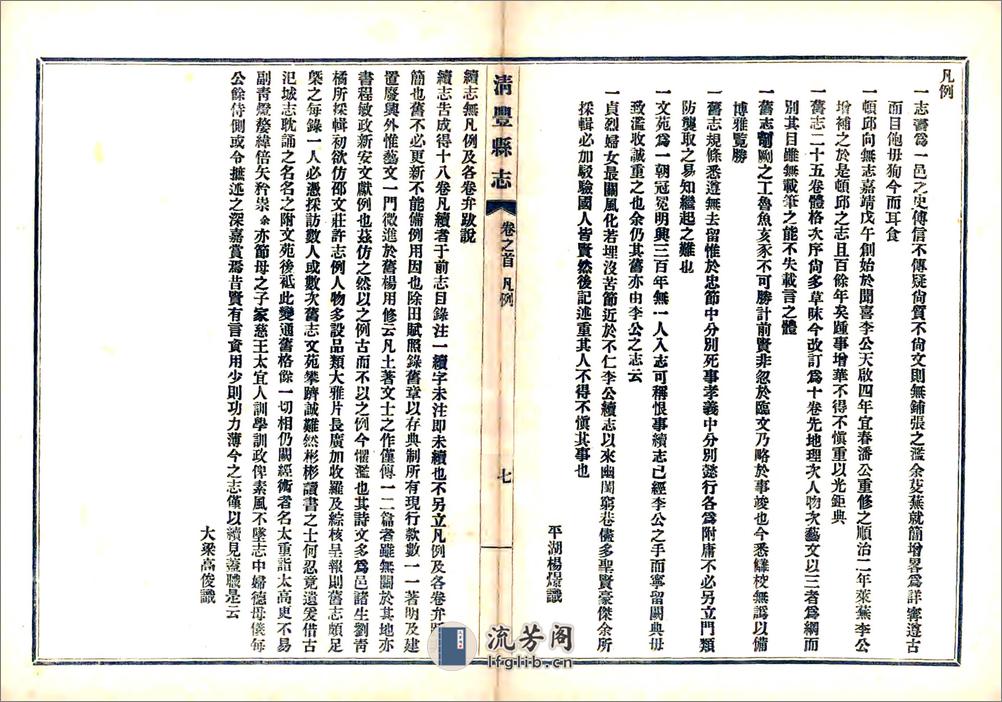 凡例
一志書爲一邑之史傳信不傳疑尙質不尙文則無鋪張之濫余芟蕪就簡增畧爲詳寧遵古
而目飽毋狥今而耳食
一頓邱向無志嘉靖戊午創始於聞喜李公天啟四年宜春潘公重修之順治二年萊蕪李公
增補之於是頓邱之志且百餘年矣踵事增華不得不愼重以光鉅典
一舊志二十五卷體格次序尙多草昧今改訂爲十卷先地理次人物次藝文以三者爲綱而
別其目雖無載筆之能不失載言之體
一舊志剞劂之工魯魚亥豕不可勝計前賢非忽於臨文乃略於事竣也今悉讎校無譌以備
博雅覽勝
一舊志規條悉遵無去留惟於忠節中分別死事孝義中分別懿行各爲附庸不必另立門類
防襲取之易知繼起之難也
一文苑爲一朝冠冕明興三百年無一人入志可稱恨事續志已經李公之手而寧留闕典毋
致濫收誠重之也余仍其舊亦由李公之志云
一貞烈婦女最關風化若理沒苦節近於不仁李公續志以來幽閨窮巷儘多聖賢豪傑余所
採輯必加駁驗國人皆賢然後記述重其人不得不愼其事也
平湖楊燝識
清豐縣志
卷之首 凡例
七
續志無凡例及各卷弁跋說
續志告成得十八卷凡續者于前志目錄注一續字未注即未續也不另立凡例及各卷弁
簡也舊不必更新不能備例用因也除田賦照錄舊章以存典制所有現行款數一一著明及建
置廢興外惟藝文一門微進於舊楊用修云凡土著文士之作僅傳一二篇者雖無關於其地亦
書程敏政新安文獻例也茲仿之然以之例古而不以之例今懼濫也其詩文多爲邑諸生劉靑
橘所採輯初欲仿邵文莊許志例人物多設品類大雅片長廣加收羅及綜核呈報則舊志頗足
槩之每錄一人必憑採訪數人或數次舊志文苑攀躋誠難然彬彬讀書之士何忍竟遺爰借古
氾城志耽誦之名名之附文苑後祇此變通舊格餘一切相仍闕經術者名太重詣太高更不易
副靑燈嫠緯倍矢矜祟余亦節母之子家慈王太宜人訓學訓政俾素風不墜志中婦德母儀每
公餘侍側或令摭述之深嘉賞焉昔賢有言資用少則功力薄今之志僅以續見蓋職是云
大梁高俊識
流芳阁
lfglib.cn